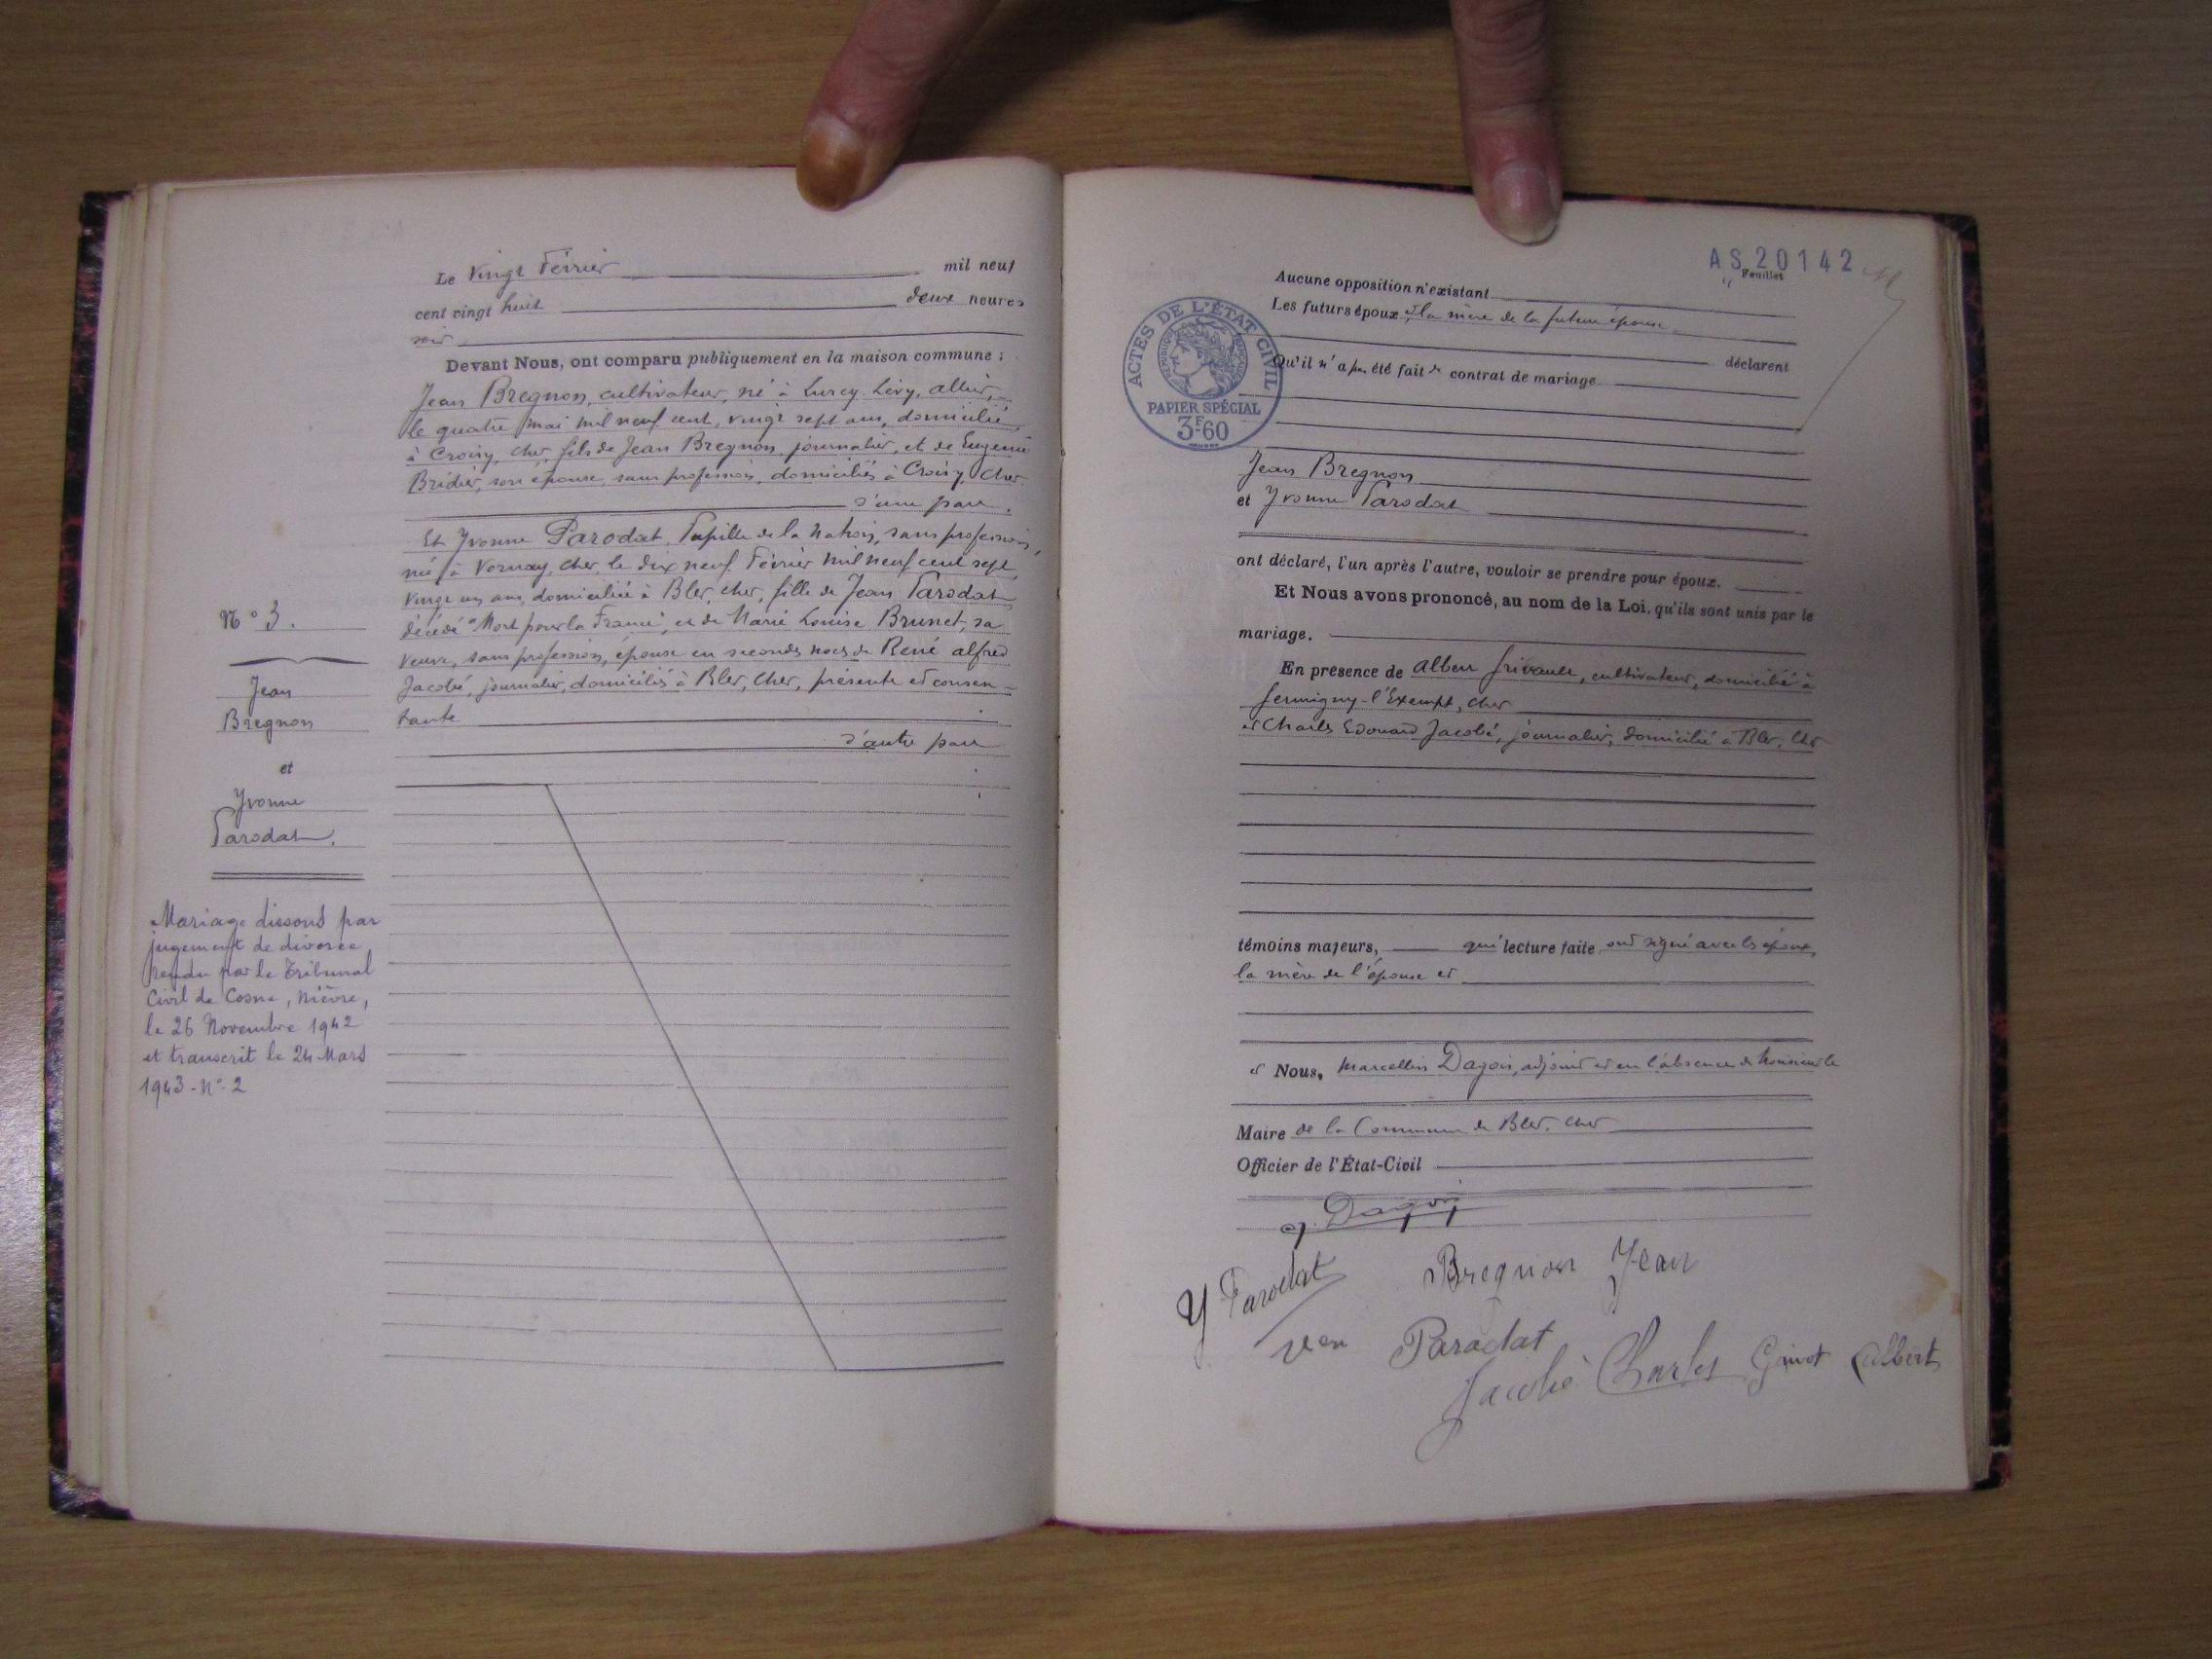 Le Vingt Février mil neuf
cent vingt huit deux heures
soir
Devant Nous, ont comparu publiquement en la maison commune :
Jean Bregnon, cultivateur, né à Lurcy-Lévy, allier,
le quatre mai mil neuf cent, vingt sept ans, domicilié
à Croisy, cher, fils de Jean Bregnon, journalier, et de Eugenie
Bridier, son épouse, sans profession, domiciliés à Croisy, Cher
d'une part.
Et Yvonne Parodat, Pupille de la Nation, sans profession,
née à Vornay, cher, le dix neuf Février mil neuf cent sept,
vingt un ans, domiciliée à Blet, cher, fille de Jean Parodat
décédé "Mort pour la France", et de Marie Louise Brunet, sa
veuve, sans profession, épouse en secondes noces de René alfred
Jacobé, journalier, domiciliés à Blet, Cher, présente et consen-
tante
d'autre part
N° 3.
Jean
Bregnon
et
Yvonne
Parodat.
Mariage dissous par
jugement de divorce
rendu par le Tribunal
Civil de Cosne, Nièvre,
le 26 Novembre 1942
et transcrit le 24 Mars
1943 - N° 2
AS 20142
Feuillet
ACTES DE L'ÉTAT CIVIL
PAPIER SPÉCIAL
3F60
Aucune opposition n'existant
Les futurs époux et la mère de la future épouse
déclarent
Qu'il n'a pas été fait de contrat de mariage
Jean Bregnon
et Yvonne Parodat
ont déclaré, l'un après l'autre, vouloir se prendre pour époux.
Et Nous avons prononcé, au nom de la Loi, qu'ils sont unis par le
mariage.
En présence de Albert, cultivateur, domicilié à
Germigny-l'Exempt, cher
et Charles Edouard Jacobé, journalier, domicilié à Blet, Cher
témoins majeurs, qui lecture faite ont signé avec les époux,
la mère de l'épouse et
et Nous, Marcellin Dagois, adjoint et en l'absence de Monsieur le
Maire de la Commune de Blet, Cher
Officier de l'État-Civil
Dagois
Y Parodat Bregnon Jean
Parodat
Jacobé Charles Albert